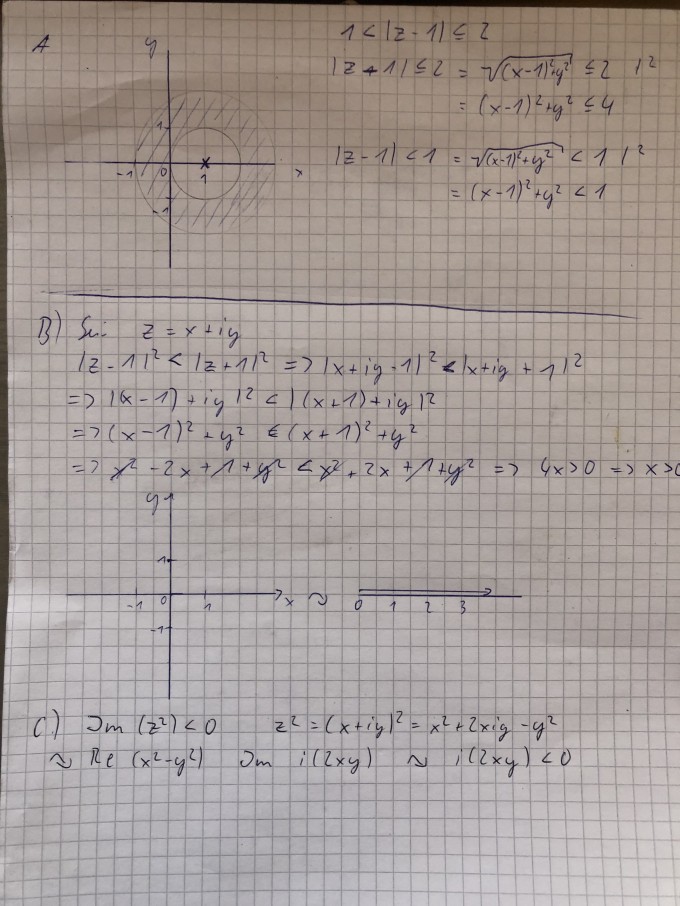 A
1 < |z - 1| ≤ 2
|z - 1| ≤ 2 = √(x-1)²+y² ≤ 2 |²
= (x-1)²+y² ≤ 4
|z-1| < 1 = √(x-1)²+y² < 1 |²
= (x-1)²+y² < 1
y
1
-1 0 1 x
-1
B) Sei: z = x+iy
|z-1|² < |z+1|² => |x+iy-1|² < |x+iy+1|²
=> |(x-1)+iy|² < |(x+1)+iy|²
=> (x-1)²+y² < (x+1)²+y²
=> x² - 2x + 1 + y² < x² + 2x + 1 + y² => 4x>0 => x>0
y
1
-1 0 1 x ≈ 0 1 2 3
-1
C.) Im (z²) < 0 z² = (x+iy)² = x²+2xiy-y²
≈ Re (x²-y²) Im i(2xy) ≈ i(2xy) < 0